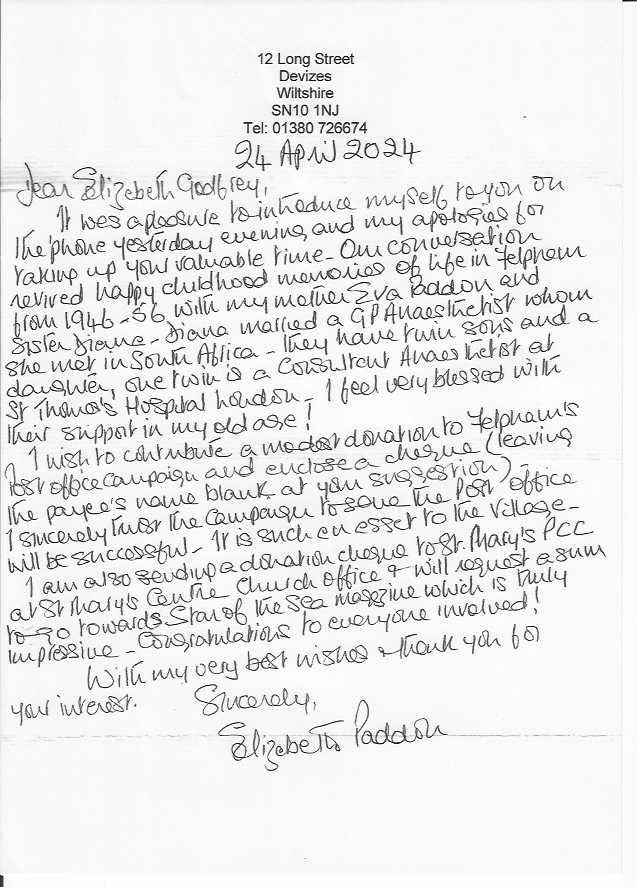 12 Long Street
Devizes
Wiltshire
SN10 1NJ
Tel: 01380 726674
24 April 2024
Dear Elizabeth Godfrey,
It was a pleasure to introduce myself to you on
the 'phone yesterday evening and my apologies for
taking up your valuable time - Our conversation
revived happy childhood memories of life in Felpham
from 1946-56 with my mother Eva Paddon and
sister Diana - Diana married a GP Anaesthetist whom
she met in South Africa - They have twin sons and a
daughter, one twin is a Consultant Anaesthetist at
St Thomas's Hospital London - I feel very blessed with
their support in my old age!
I wish to contribute a modest donation to Felpham's
post office campaign and enclose a cheque (leaving
the payee's name blank at your suggestion) -
I sincerely trust the campaign to save the Post Office
will be successful - It is such an asset to the village -
I am also sending a donation cheque to St. Mary's PCC
at St Mary's Centre Church Office & will request a sum
to go towards Star of the Sea magazine which is truly
impressive - Congratulations to everyone involved!
With my very best wishes & thank you for
your interest.
Sincerely,
Elizabeth Paddon